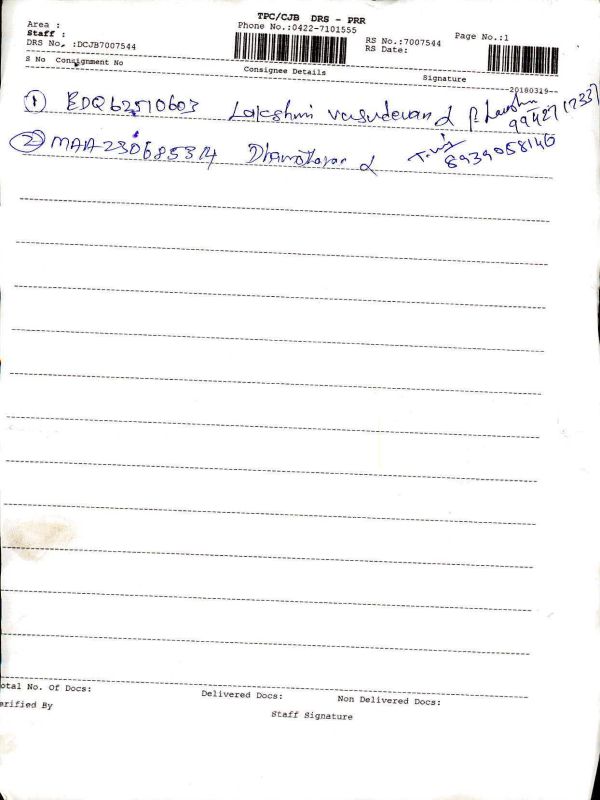 TPC/CJB DRS - PRR
Area : Phone No.:0422-7101555 RS No.:7007544 Page No.:1
Staff : RS Date:
DRS No. :DCJB7007544
S No Consignment No Consignee Details Signature --20180319--
1 EDQ62510603 Lakshmi vasudevan d
2 MAA230685314 d 8939058146
otal No. Of Docs: Delivered Docs: Non Delivered Docs:
erified By Staff Signature